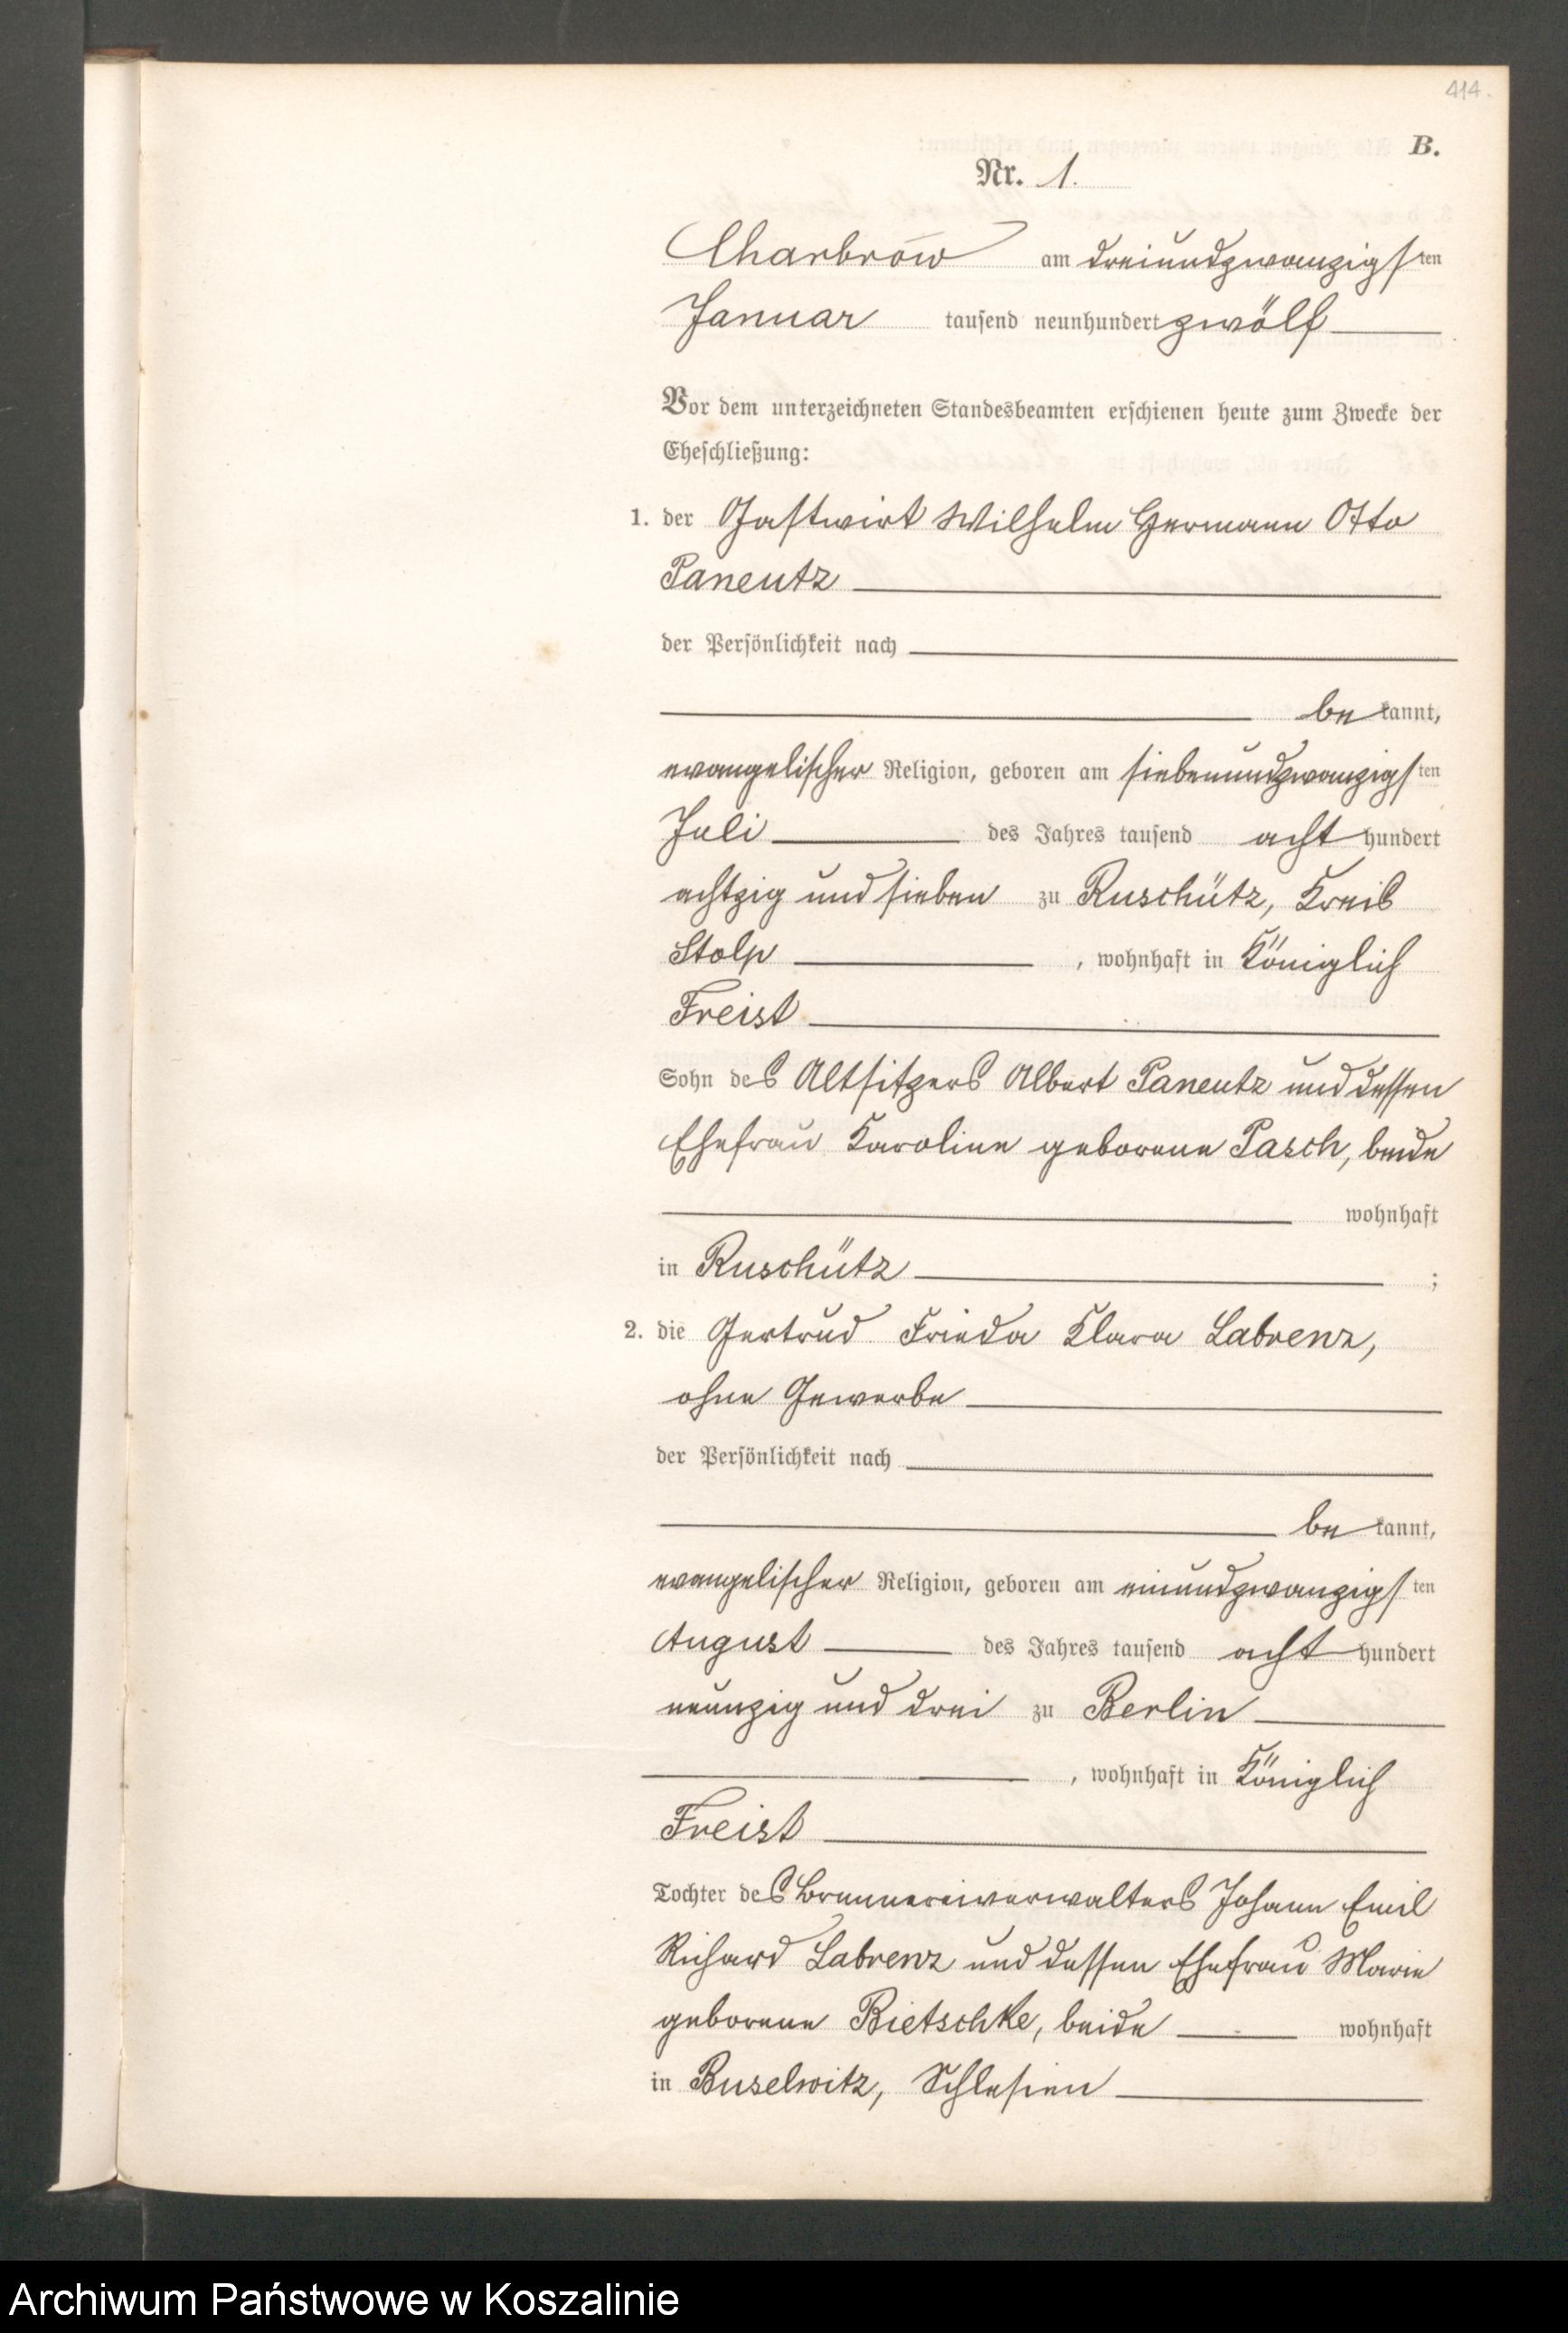 414.
B.
Nr. 1.
Charbrow am dreiundzwanzigsten
Januar tausend neunhundert zwölf
Vor dem unterzeichneten Standesbeamten erschienen heute zum Zwecke der
Eheschließung:
1. der Gastwirt Wilhelm Hermann Otto
Paneutz
der Persönlichkeit nach
bekannt,
evangelischer Religion, geboren am siebenundzwanzigsten
Juli des Jahres tausend acht hundert
achtzig und sieben zu Ruschütz, Kreis
Stolp, wohnhaft in Königlich
Freist
Sohn des Altsitzers Albert Paneutz und dessen
Ehefrau Karoline geborene Pasch, beide
wohnhaft
in Ruschütz ;
2. die Gertrud Frieda Klara Labrenz,
ohne Gewerbe
der Persönlichkeit nach
bekannt,
evangelischer Religion, geboren am einundzwanzigsten
August des Jahres tausend acht hundert
neunzig und drei zu Berlin
, wohnhaft in Königlich
Freist
Tochter des Brennereiverwalters Johann Emil
Richard Labrenz und dessen Ehefrau Marie
geborene Bietschke, beide wohnhaft
in Buselwitz, Schlesien
Archiwum Państwowe w Koszalinie